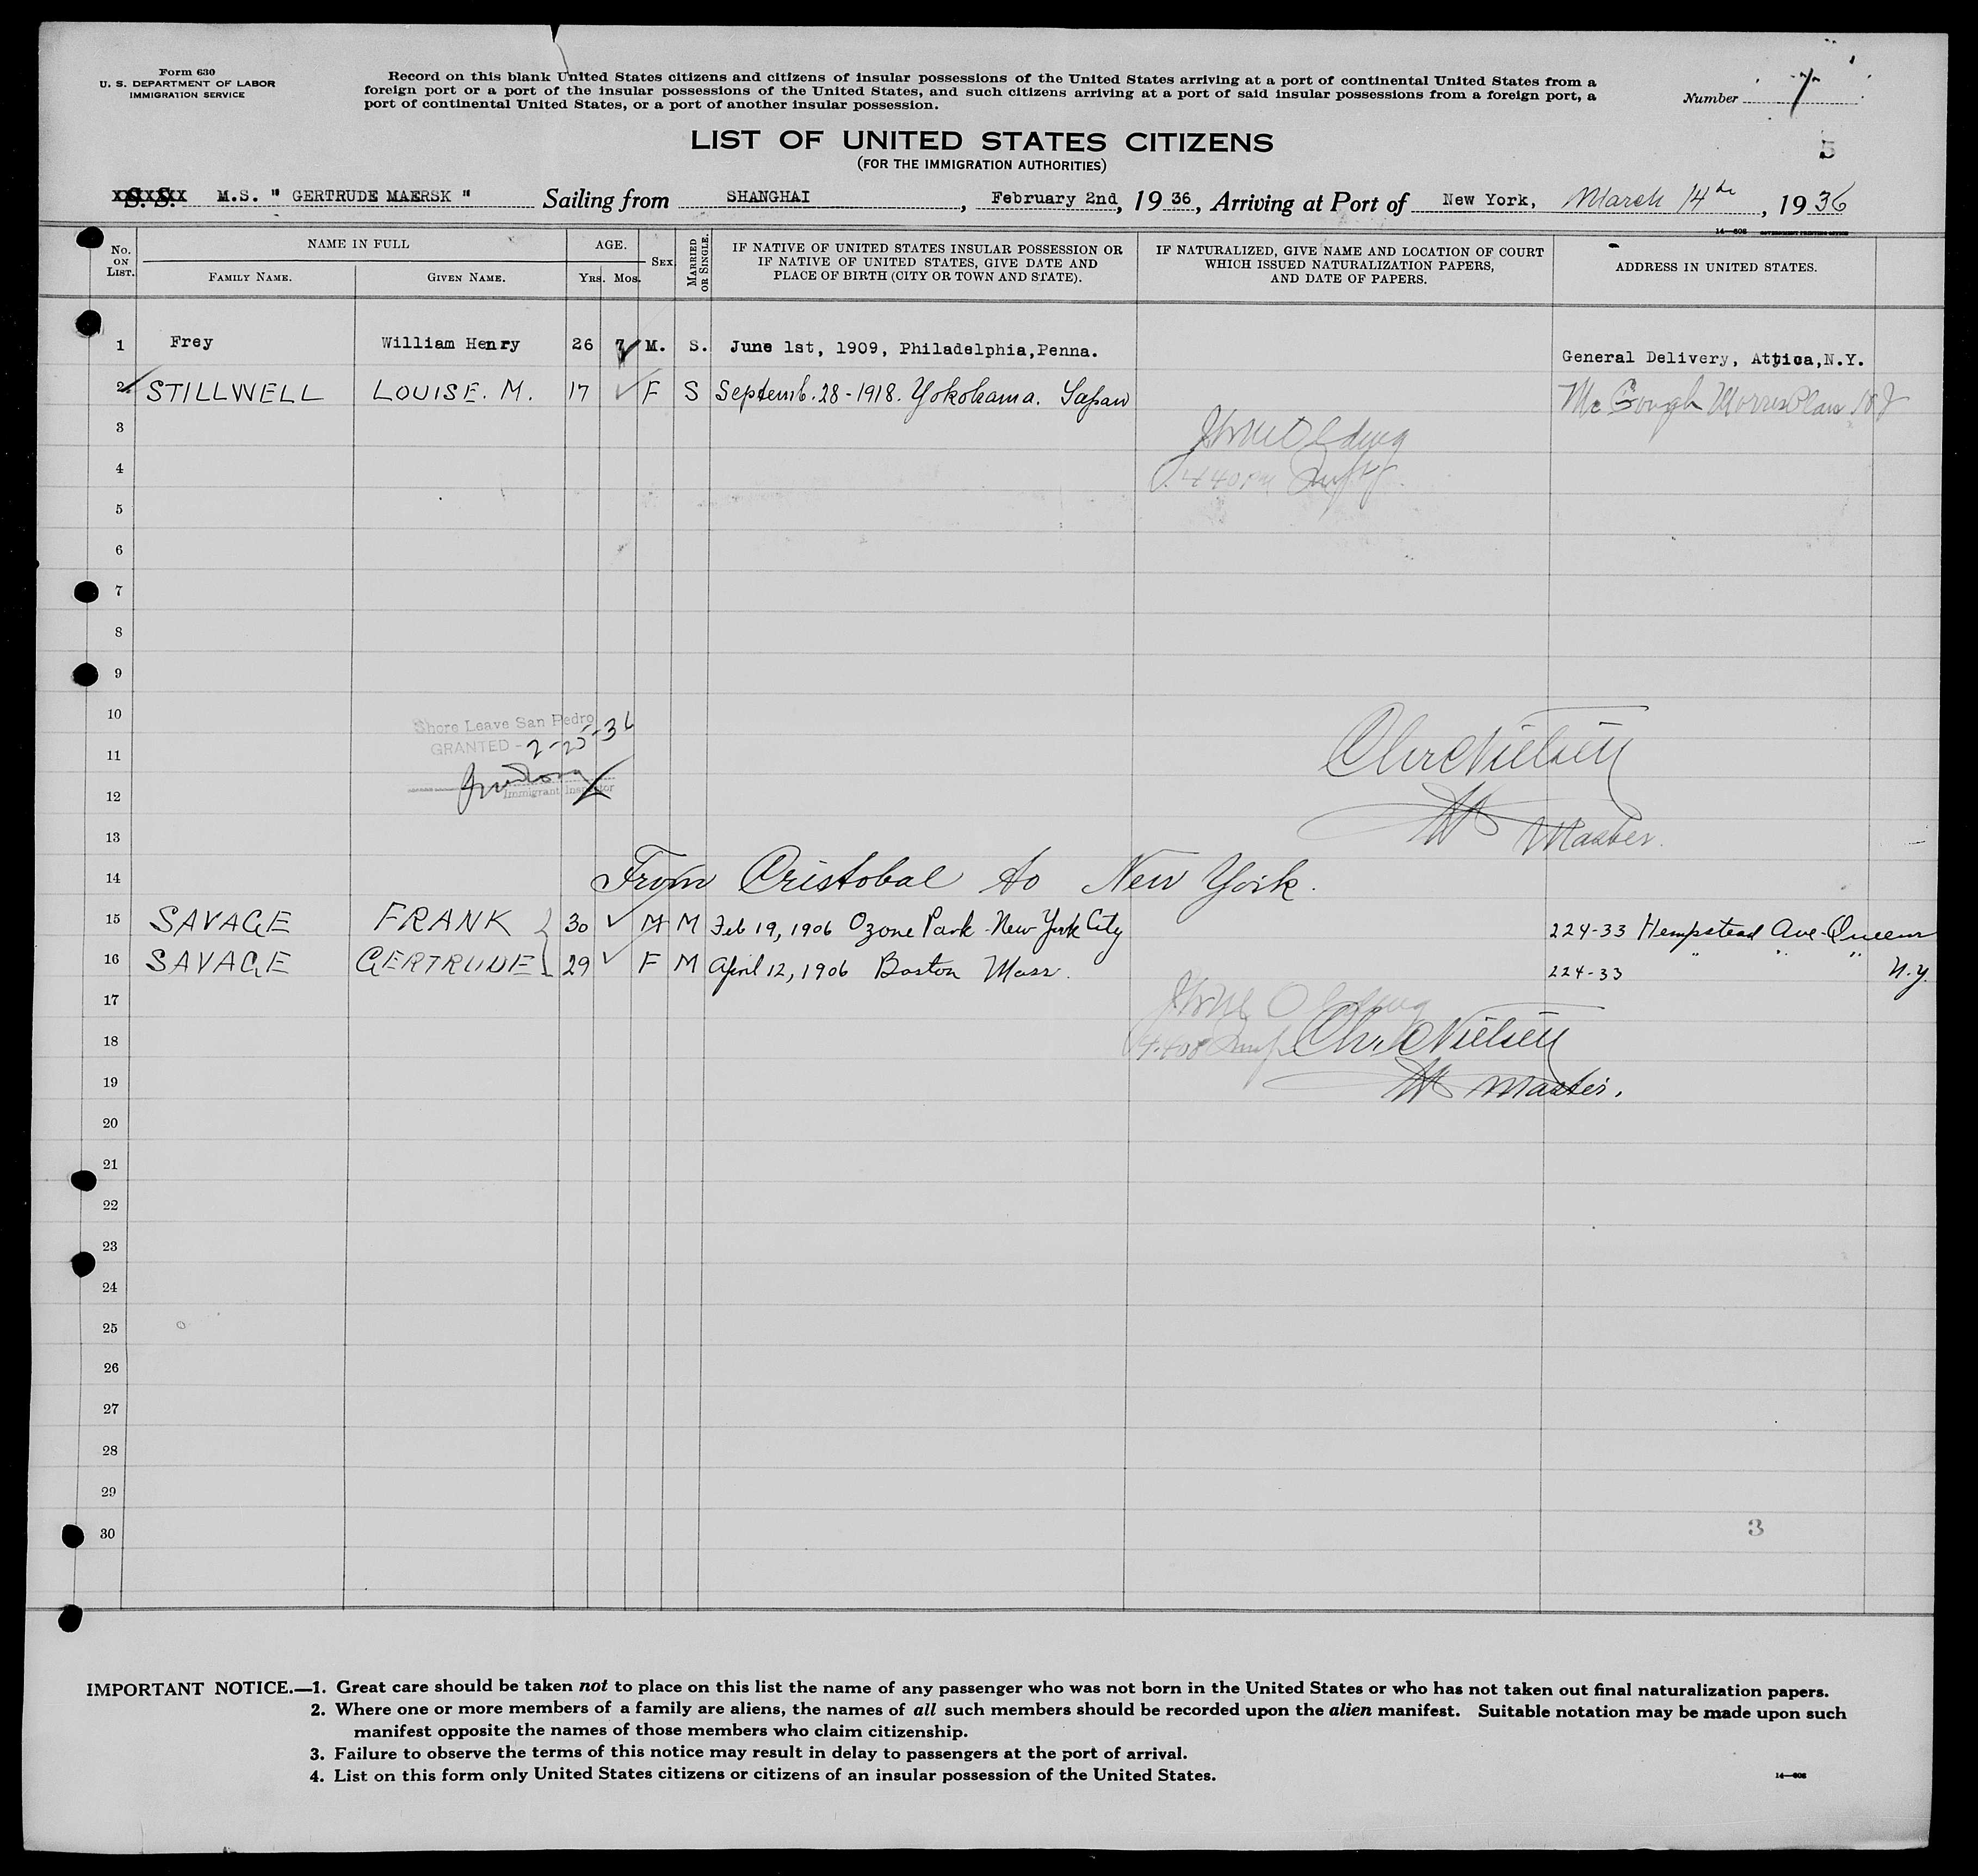 Form 630
U. S. DEPARTMENT OF LABOR
IMMIGRATION SERVICE
Record on this blank United States citizens and citizens of insular possessions of the United States arriving at a port of continental United States from a
foreign port or a port of the insular possessions of the United States, and such citizens arriving at a port of said insular possessions from a foreign port, a
port of continental United States, or a port of another insular possession.
Number 7
5
LIST OF UNITED STATES CITIZENS
(FOR THE IMMIGRATION AUTHORITIES)
S. S. M.S. " GERTRUDE MAERSK " Sailing from SHANGHAI, February 2nd, 1936, Arriving at Port of New York, March 14th, 1936
14—608 GOVERNMENT PRINTING OFFICE
No. ON LIST.
NAME IN FULL
FAMILY NAME. GIVEN NAME.
AGE.
YRS. MOS.
SEX
MARRIED OR SINGLE.
IF NATIVE OF UNITED STATES INSULAR POSSESSION OR
IF NATIVE OF UNITED STATES, GIVE DATE AND
PLACE OF BIRTH (CITY OR TOWN AND STATE).
IF NATURALIZED, GIVE NAME AND LOCATION OF COURT
WHICH ISSUED NATURALIZATION PAPERS,
AND DATE OF PAPERS.
ADDRESS IN UNITED STATES.
1 Frey William Henry 26 7 M. S. June 1st, 1909, Philadelphia,Penna. General Delivery, Attica,N.Y.
2 STILLWELL LOUISE. M. 17 F S Septemb. 28-1918. Yokohama. Japan Mc Gough Morris Plains N J
3
4
5
6
7
8
9
10
Shore Leave San Pedro
GRANTED - 2-25-36
11
Chr Nielsen
Immigrant Inspector
12
13 Master.
14 From Cristobal to New York.
15 SAVAGE FRANK 30 M M Feb 19, 1906 Ozone Park - New York City 224-33 Hempstead Ave. Queens
16 SAVAGE GERTRUDE 29 F M April 12, 1906 Boston Mass. 224-33 " " " N.Y.
17
18 Chr Nielsen
19 Master.
20
21
22
23
24
25
26
27
28
29
30
3
IMPORTANT NOTICE.—1. Great care should be taken not to place on this list the name of any passenger who was not born in the United States or who has not taken out final naturalization papers.
2. Where one or more members of a family are aliens, the names of all such members should be recorded upon the alien manifest. Suitable notation may be made upon such
manifest opposite the names of those members who claim citizenship.
3. Failure to observe the terms of this notice may result in delay to passengers at the port of arrival.
4. List on this form only United States citizens or citizens of an insular possession of the United States.
14—608